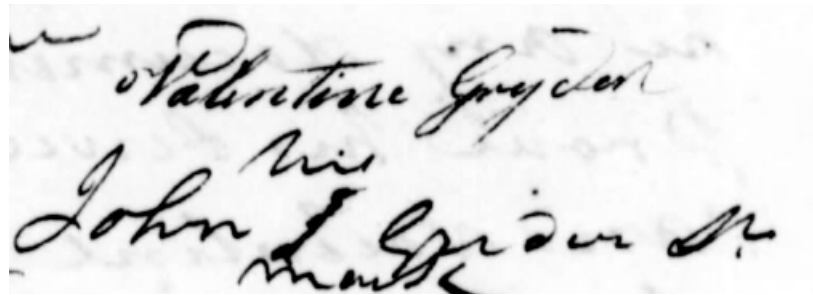 Valentine Gryder
his
John I Grider Sr.
mark